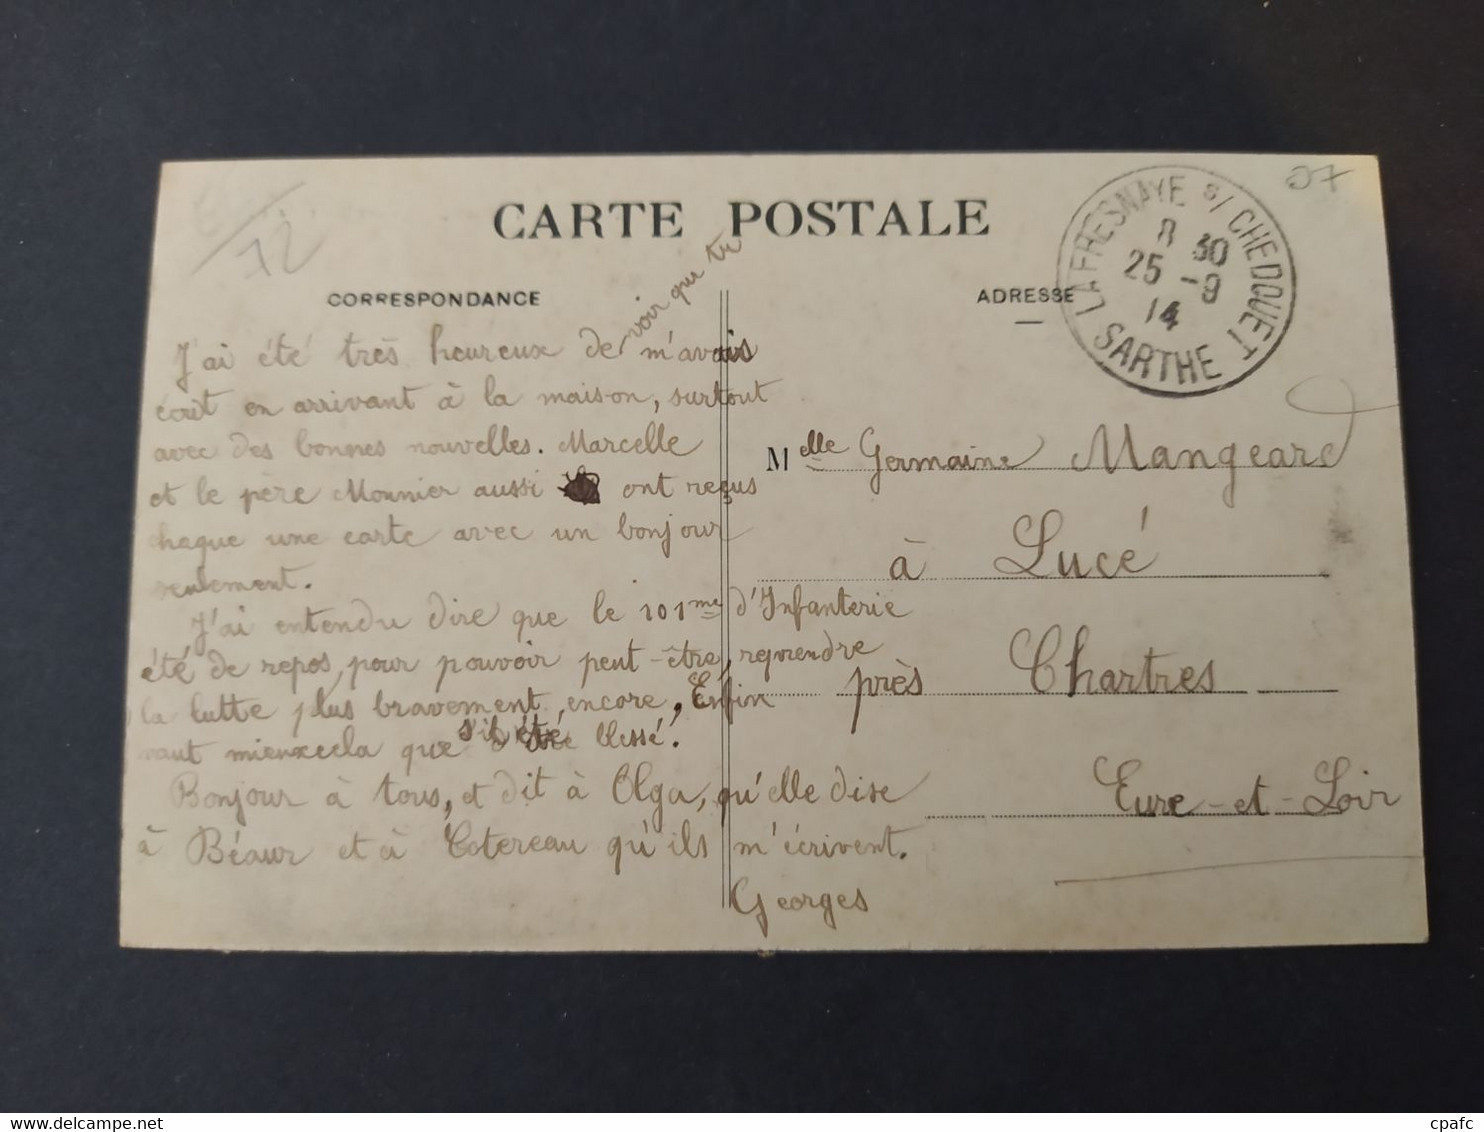 CARTE POSTALE
CORRESPONDANCE
J'ai été très heureux de voir que tu m'avais
écrit en arrivant à la maison, surtout
avec des bonnes nouvelles. Marcelle
et le père Monnier aussi ont reçus
chaque une carte avec un bonjour
seulement.
J'ai entendu dire que le 101me d'Infanterie
été de repos, pour pouvoir peut-être, reprendre
la lutte plus bravement, encore, Enfin
vaut mieux cela que s'il été blessé!
Bonjour à tous, et dit à Olga, qu'elle dise
à Béaur et à Cotereau qu'ils m'écrivent.
Georges
ADRESSE
LA FRESNAYE s/ CHEDOUET
8 30
25 -9
14
SARTHE
72
Melle Germaine Mangeard
à Lucé
près Chartres
Eure-et-Loir
cpafc